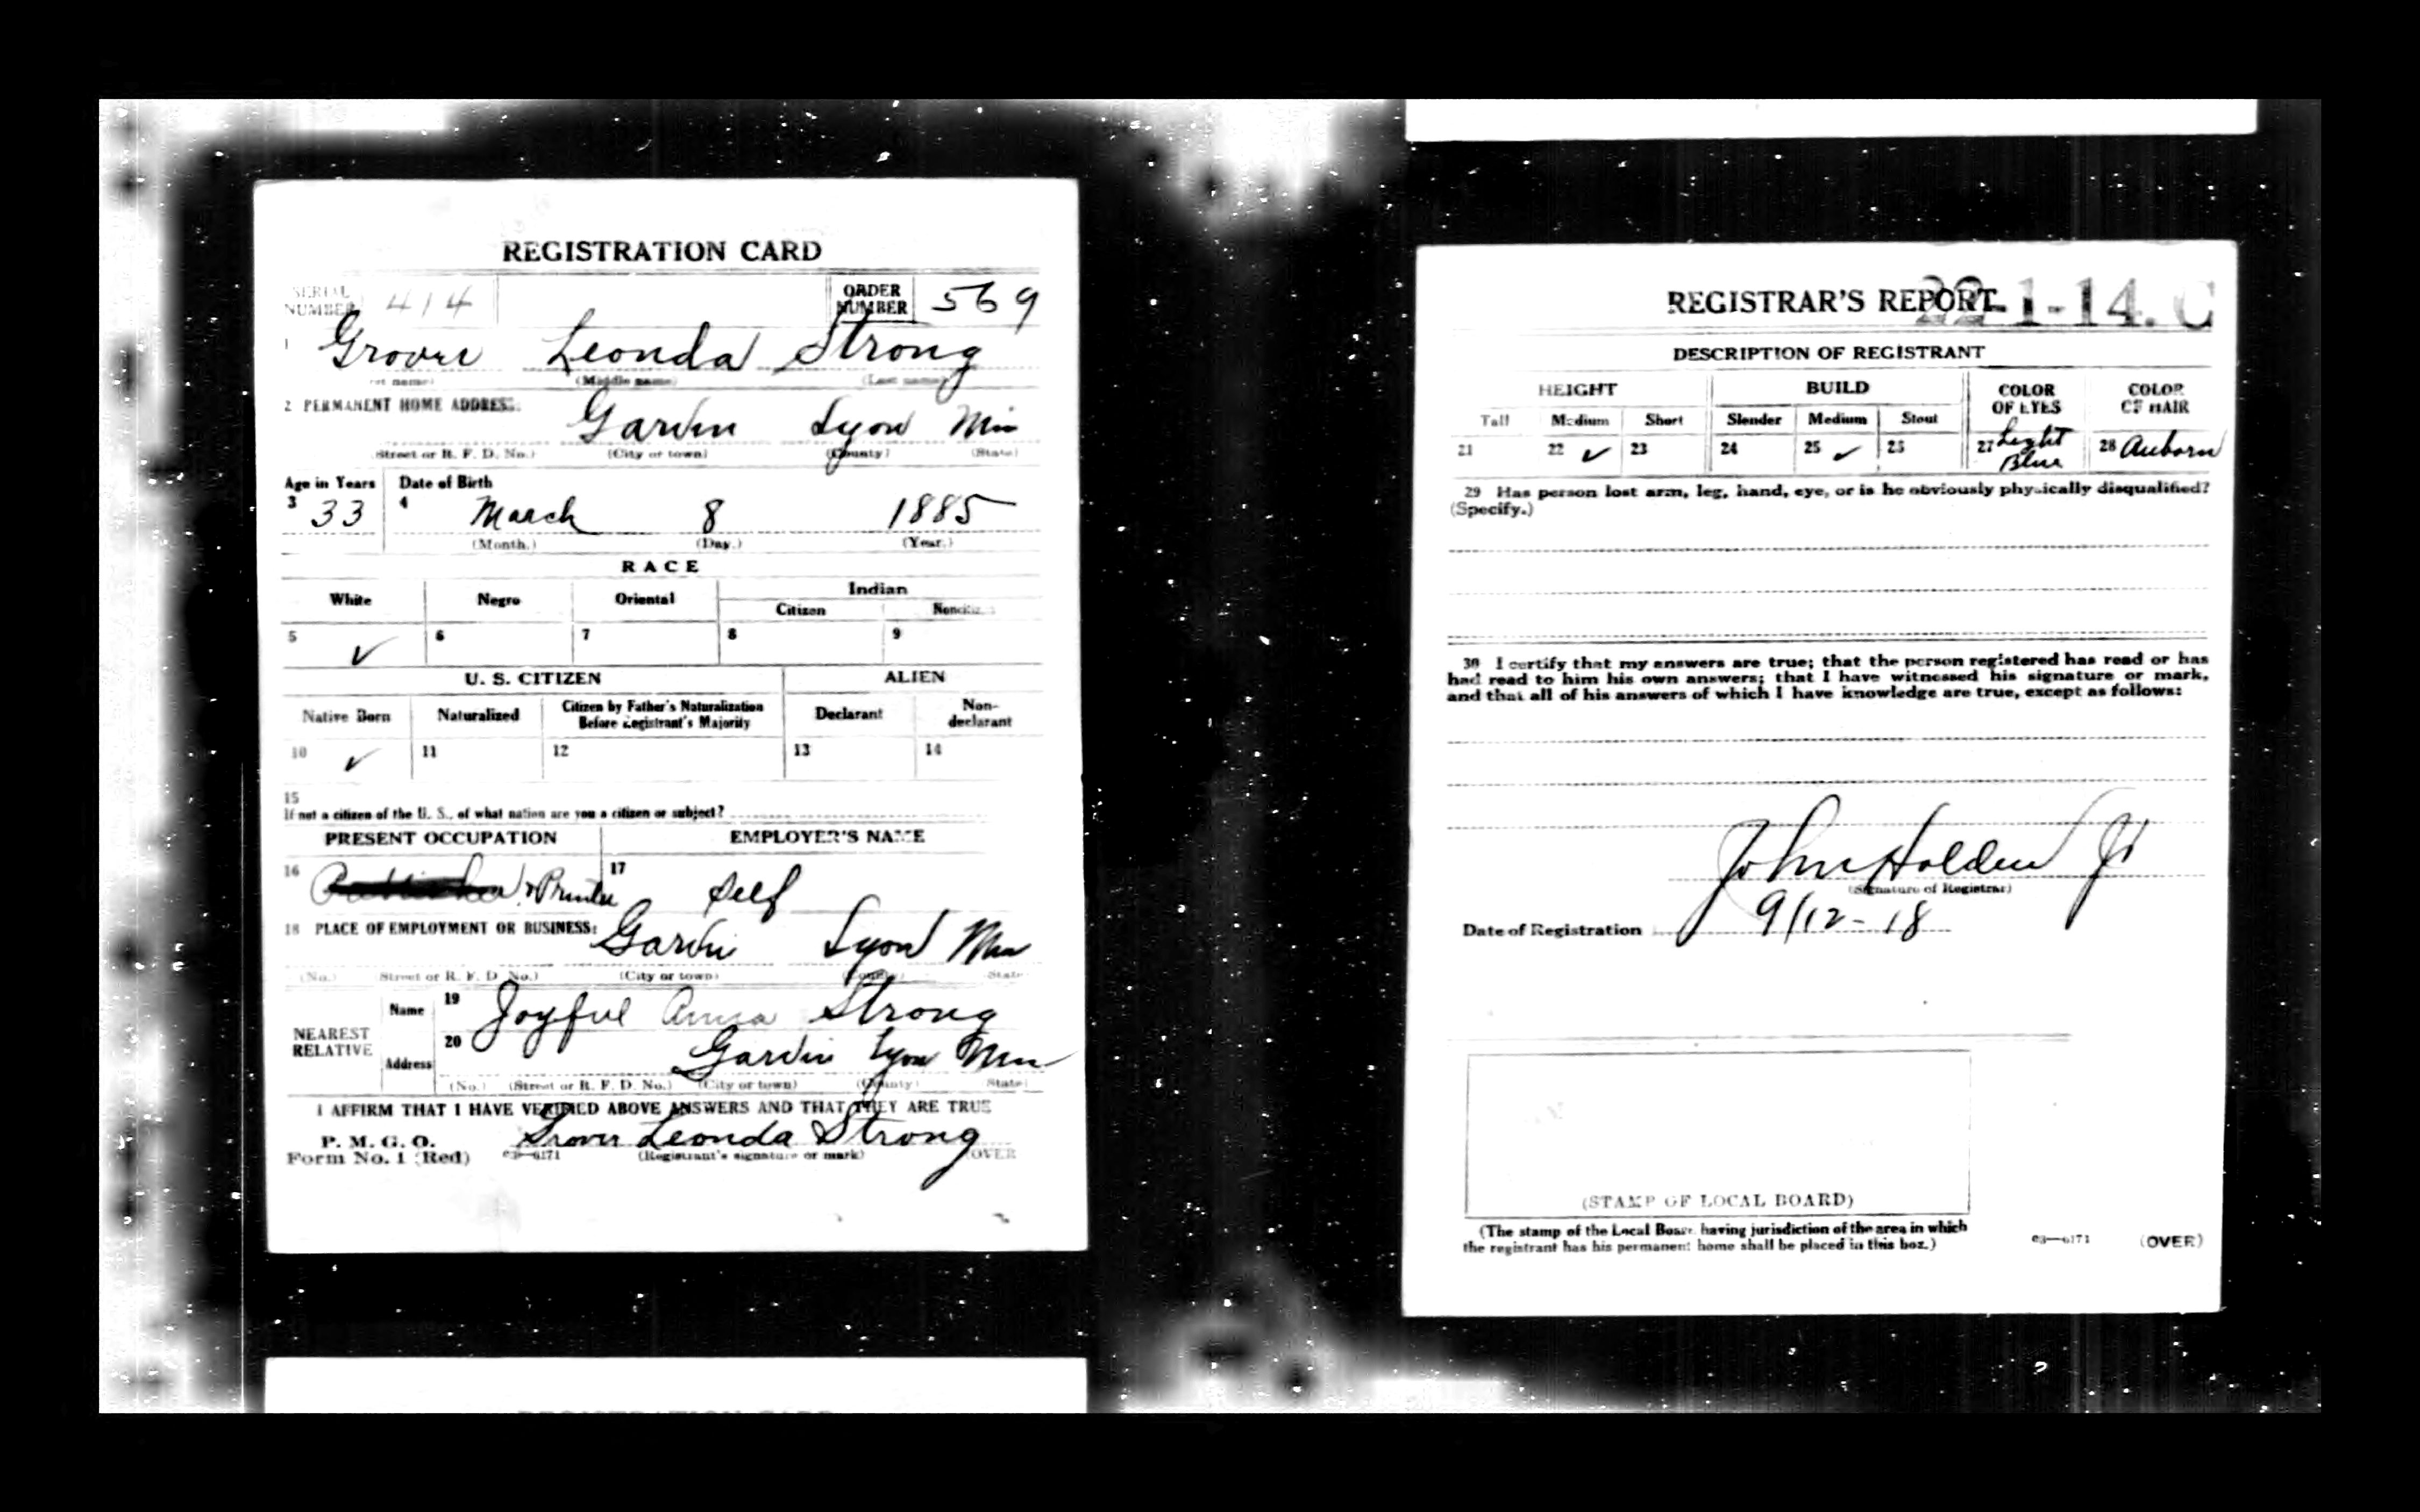 REGISTRATION CARD
SERIAL NUMBER 414 ORDER NUMBER 569
1 Grover Leonda Strong
(Middle name) (Last name)
2 PERMANENT HOME ADDRESS: Garvin Lyon Min
(Street or R. F. D. No.) (City or town) (County) (State)
Age in Years Date of Birth
3 33 4 March 8 1885
(Month.) (Day.) (Year.)
RACE
White Negro Oriental Indian
Citizen Noncitizen
5 ✓ 6 7 8 9
U. S. CITIZEN ALIEN
Native Born Naturalized Citizen by Father's Naturalization Before Registrant's Majority Declarant Non-declarant
10 ✓ 11 12 13 14
15
If not a citizen of the U. S., of what nation are you a citizen or subject?
PRESENT OCCUPATION EMPLOYER'S NAME
16 & Printer 17 Self
18 PLACE OF EMPLOYMENT OR BUSINESS: Garvin Lyon Min
(No.) Street or R. F. D. No.) (City or town) (County) State
NEAREST RELATIVE
Name 19 Joyful Anna Strong
Address 20 Garvin Lyon Min
(No.) (Street or R. F. D. No.) (City or town) (County) State)
I AFFIRM THAT I HAVE VERIFIED ABOVE ANSWERS AND THAT THEY ARE TRUE
P. M. G. O.
Form No. 1 (Red) Grover Leonda Strong
03—6171 (Registrant's signature or mark) (OVER
REGISTRAR'S REPORT 22-1-14. C
DESCRIPTION OF REGISTRANT
HEIGHT BUILD COLOR OF EYES COLOR OF HAIR
Tall Medium Short Slender Medium Stout
21 22 ✓ 23 24 25 ✓ 26 27 Light Blue 28 Auborn
29 Has person lost arm, leg, hand, eye, or is he obviously physically disqualified?
(Specify.)
30 I certify that my answers are true; that the person registered has read or has
had read to him his own answers; that I have witnessed his signature or mark,
and that all of his answers of which I have knowledge are true, except as follows:
John Holden Jr
(Signature of Registrar)
Date of Registration 9/12-18
(STAMP OF LOCAL BOARD)
(The stamp of the Local Board having jurisdiction of the area in which
the registrant has his permanent home shall be placed in this box.)
03—6171 (OVER)